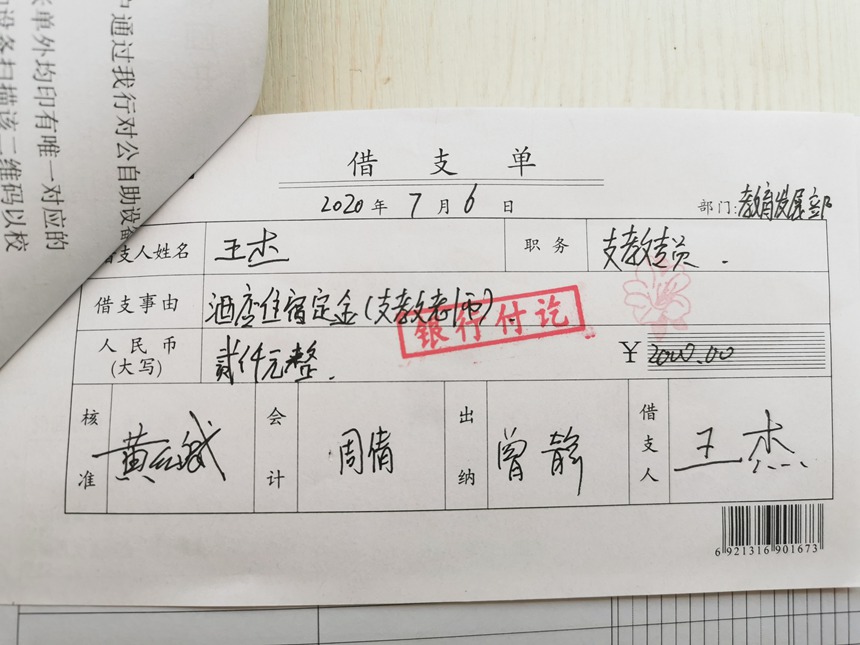 中通过我行对公自助设备
单外均印有唯一对应的
设备扫描该二维码以校
借支单
2020年7月6日
部门:教育发展部
借支人姓名 王杰 职务 支教专员.
借支事由 酒店住宿定金(支教老师).
银行付讫
人民币(大写) 贰仟元整. ¥2000.00
核准 会计 周倩 出纳 曾静 借支人 王杰
6921316901673